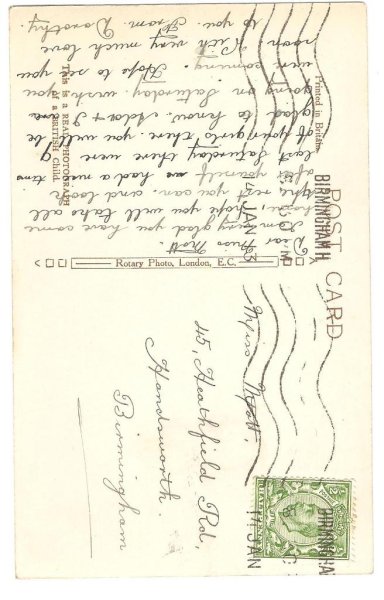 POST CARD
Printed in Britain.
Rotary Photo, London, E.C.
This is a REAL PHOTOGRAPH
of a BRITISH Child.
BIRMINGHAM
JAN
BIRMINGHA
17 JAN
Dear Miss Mott.
I am very glad you have come
home, I hope you will take all
the rest you can and look
after yourself. We had a nice time
last Saturday, there were 9
of your girls there, you will be
glad to know. Ada & I are
going on Saturday, wish you
were coming. Hope to see you
soon. With very much love
to you. From Dorothy.
Miss Mott,
45, Heathfield Rd,
Handsworth.
Birmingham